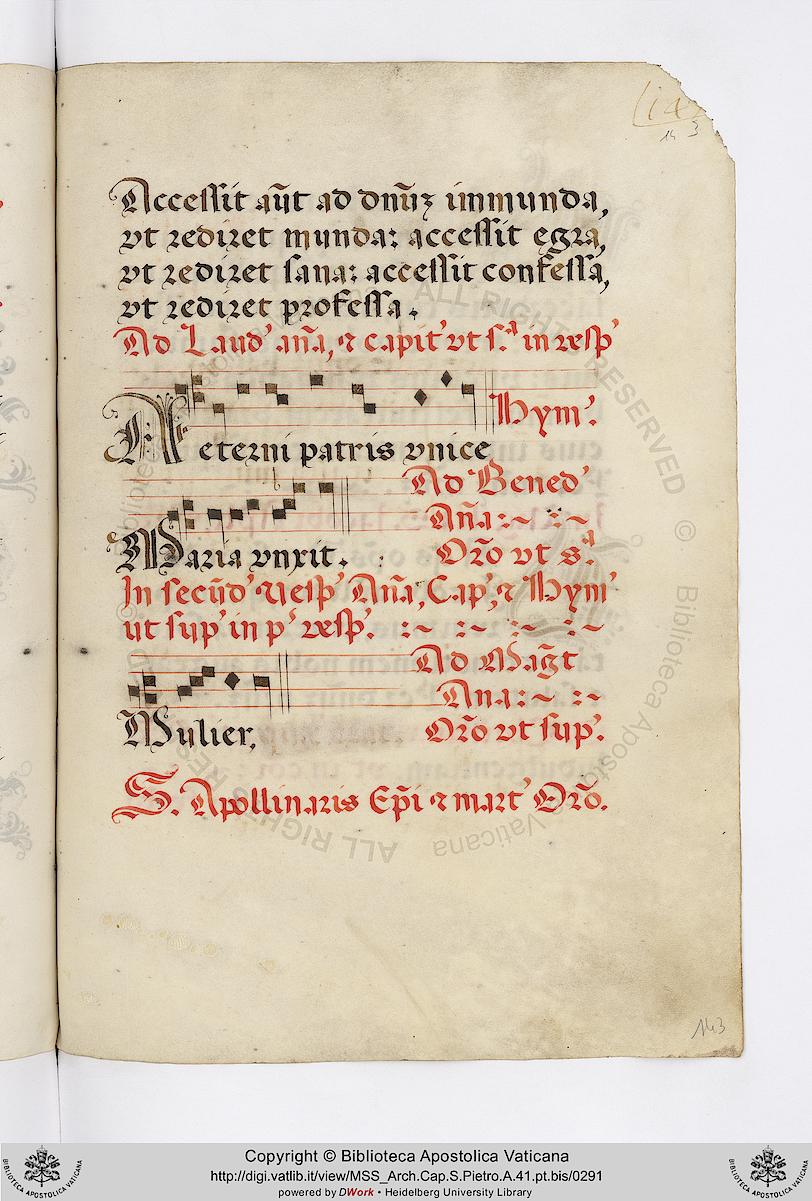 143
Accessit aūt ad dnūʒ immunda,
vt rediret munda: accessit egra,
vt rediret sana: accessit confessa,
vt rediret professa.
Ad Laud' aña, ⁊ capit' vt sᵃ. in vesp'
Hym'.
Aeterni patris vnice
Ad Bened'
Aña:~ :~
Maria vnxit. Orõ vt sᵃ.
In secūd' Vesp' Aña, Cap', ⁊ Hym'
ut sup' in p' vesp'. :~ :~ :~ :~
Ad Mag̃t
Ana:~ :~
Mulier. Orõ vt sup'.
S. Apollinaris Ep̃i ⁊ mart' Orõ.
143
ALL RIGHTS RESERVED © Biblioteca Apostolica Vaticana
BIBLIOTECA APOSTOLICA VATICANA
Copyright © Biblioteca Apostolica Vaticana
http://digi.vatlib.it/view/MSS_Arch.Cap.S.Pietro.A.41.pt.bis/0291
powered by DWork • Heidelberg University Library
BIBLIOTECA APOSTOLICA VATICANA